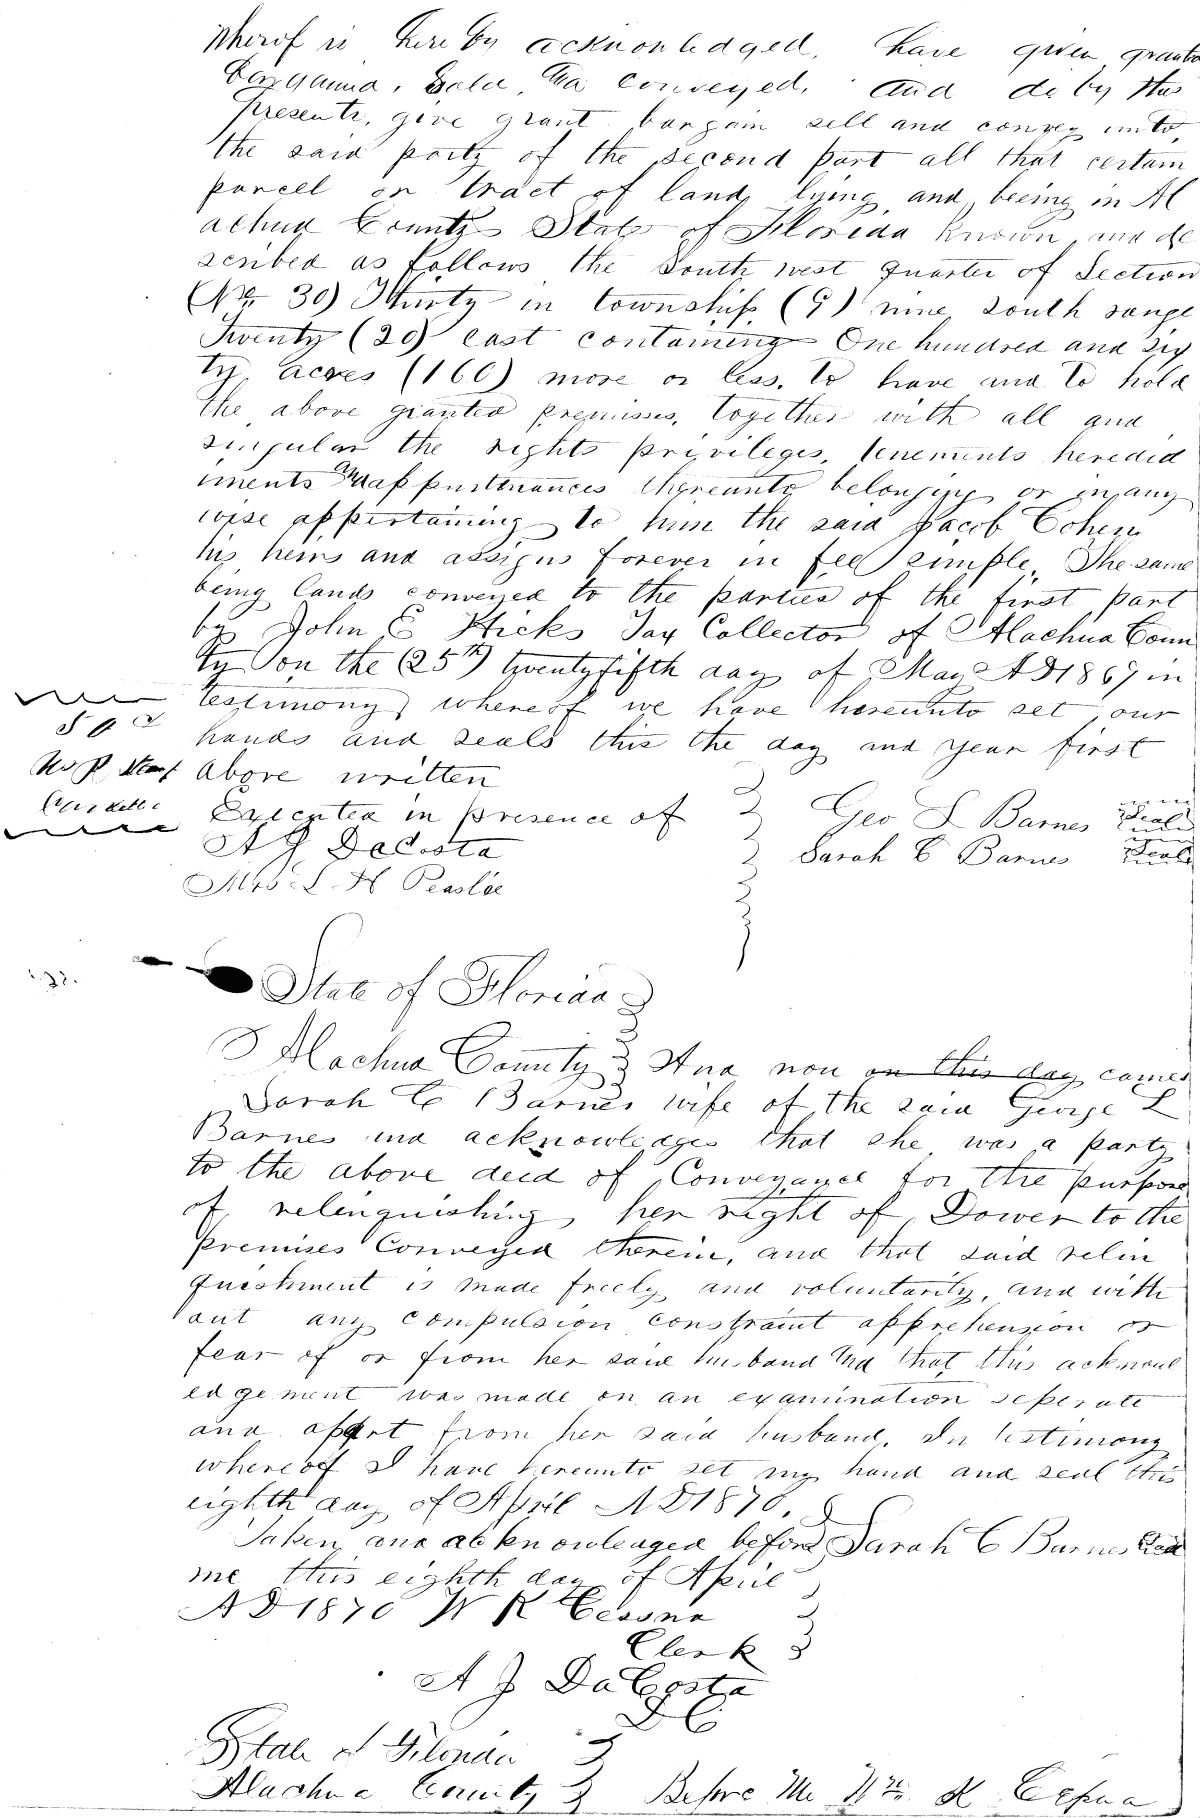 Wherof is hereby acknowledged, have given grante
Bargained, Sold, and conveyed, and do by this
presents, give grant bargain sell and convey unto,
the said party of the second part all that certain
parcell or tract of land, lying and beeing in Al
achua County State of Florida known, and de
scribed as follows the South west quarter of Section
(No 30) Thirty in township (9) nine south range
Twenty (20) east containing One hundred and six
ty acres (160) more or less. To have and to hold
the above granted premisses, together with all and
singular the rights privileges, tenements heredid
iments and appurtenances thereunto belonging or in any
wise appertaining to him the said Jacob Cohen
his heirs and assigns forever in fee simple, The same
being lands conveyed to the parties of the first part
by John E Hicks Tax Collector of Alachua Coun
ty on the (25th) twentyfifth day of May AD 1869 in
testimony whereof we have hereunto set our
hands and seals this the day and year first
above written
Executed in presence of Geo L Barnes Seal
A J DaCosta Sarah C Barnes Seal
Mrs L H Peaslee
State of Florida
Alachua County And now on this day comes
Sarah C Barnes wife of the said George L
Barnes and acknowledges that she was a party
to the above deed of Conveyance for the purpose
of relinquishing her right of Dower to the
premises Conveyed therein, and that said relin
quishment is made freely and voluntarily, and with
out any compulsion constraint apprehension or
fear of or from her said husband and that this acknowl
edgement was made on an examination seperate
and apart from her said husband. In testimony
whereof I have hereunto set my hand and seal this
eighth day of April AD 1870.
Taken and acknowledged before Sarah C Barnes Seal
me this eighth day of April
AD 1870 W K Cessna
Clerk
A J DaCosta
DC
State of Florida
Alachua County Before Me Wm K Cessna